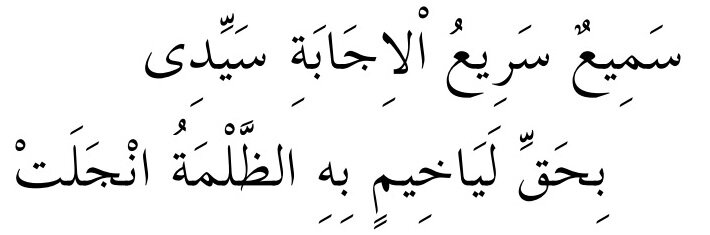 سَمِيعٌ سَرِيعُ اْلاِجَابَةِ سَيِّدِى
بِحَقِّ لَيَاخِيمٍ بِهِ الظَّلْمَةُ انْجَلَتْ